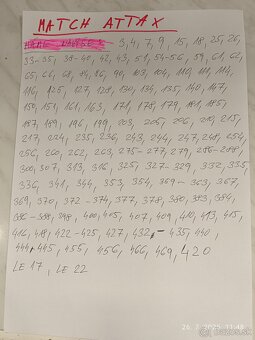 MATCH ATTAX
3, 4, 7, 9, 15, 18, 25, 26,
33-35, 38-40, 42, 43, 51, 54-56, 59, 61, 62
65, 66, 68, 84, 86, 90, 103, 104, 110, 111, 114,
116, 125, 127, 128, 130, 134, 135, 140, 147,
150, 151, 161, 163, 171, 178, 179, 181, 185,
187, 189, 196, 199, 203, 205, 206, 211, 215,
217, 224, 235, 236, 243, 244, 247, 248, 254
256, 260, 262, 263, 275-277, 279, 286-288,
300, 307, 313, 316, 325, 327-329, 332, 335,
336, 341, 344, 353, 354, 359-363, 367,
369, 370, 372-374, 377, 378, 380, 383, 384,
386-388, 398, 400, 405, 407, 409, 410, 413, 415,
416, 418, 422-425, 427, 432, -435, 440,
444, 445, 455, 456, 466, 469, 420
LE 17, LE 22
26. 7. 2025 11:48